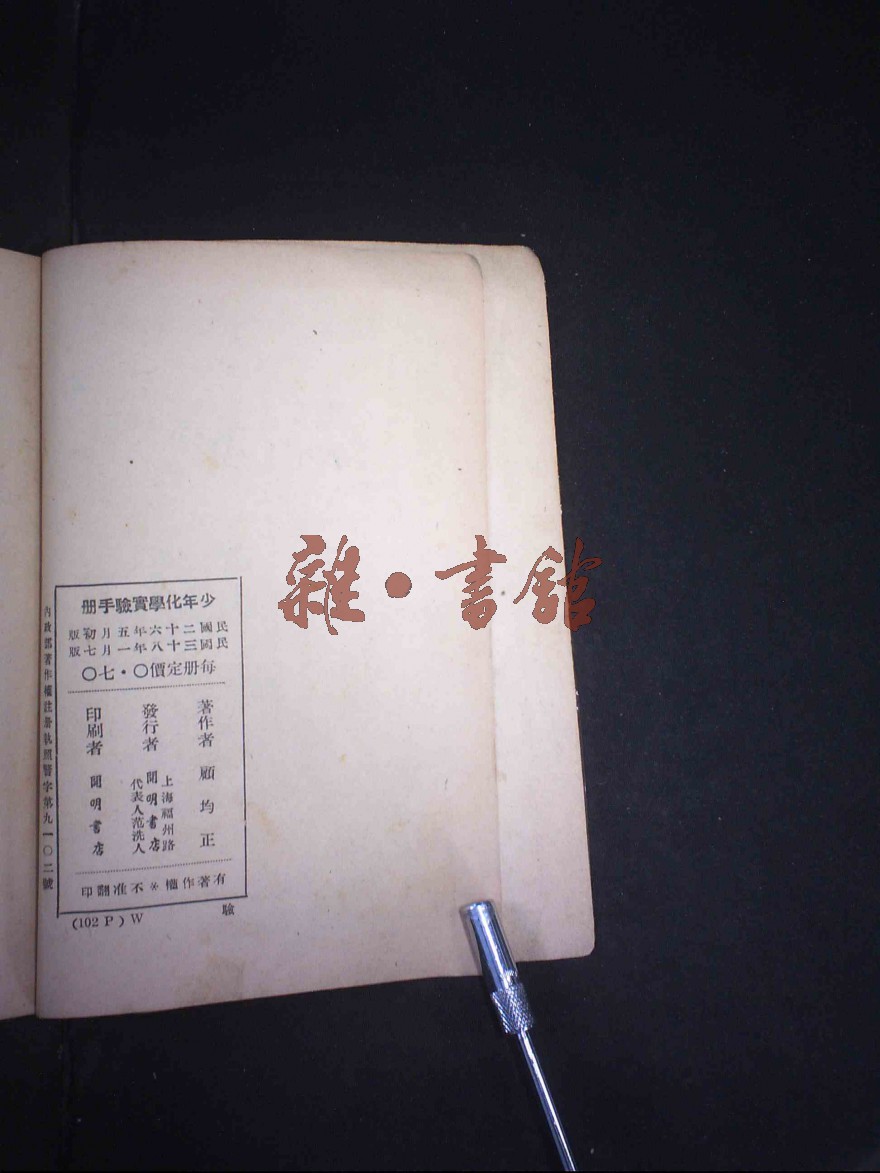 少年化學實驗手册
民國二十六年五月初版
民國三十八年一月七版
每册定價〇・七〇
著作者 顧均正
發行者 上海福州路
開明書店
代表人范洗人
印刷者 開明書店
有著作權※不准翻印
內政部著作權註册執照警字第九一〇二號
(102 P) W
驗
雜・書館